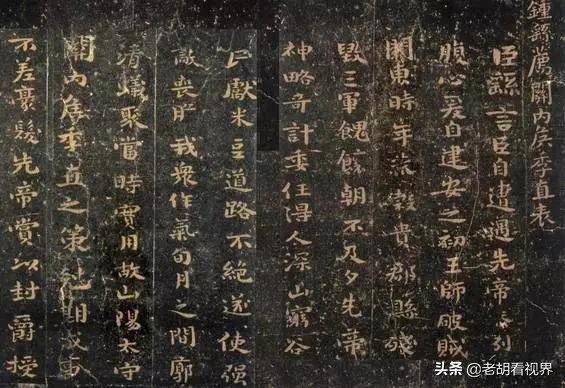 鍾繇薦關內侯季直表
臣繇言臣自遭遇先帝忝列
腹心爰自建安之初王師破賊
關東時年荒榖貴郡縣殘
毀三軍餽饟朝不及夕先帝
神略奇計委任得人深山窮谷
民獻米豆道路不絕遂使強
敵喪膽我衆作氣旬月之間廓
清蟻聚當時實用故山陽太守
關內侯季直之策剋期成事
不差豪髮先帝賞以封爵授
头条 @老胡看视界